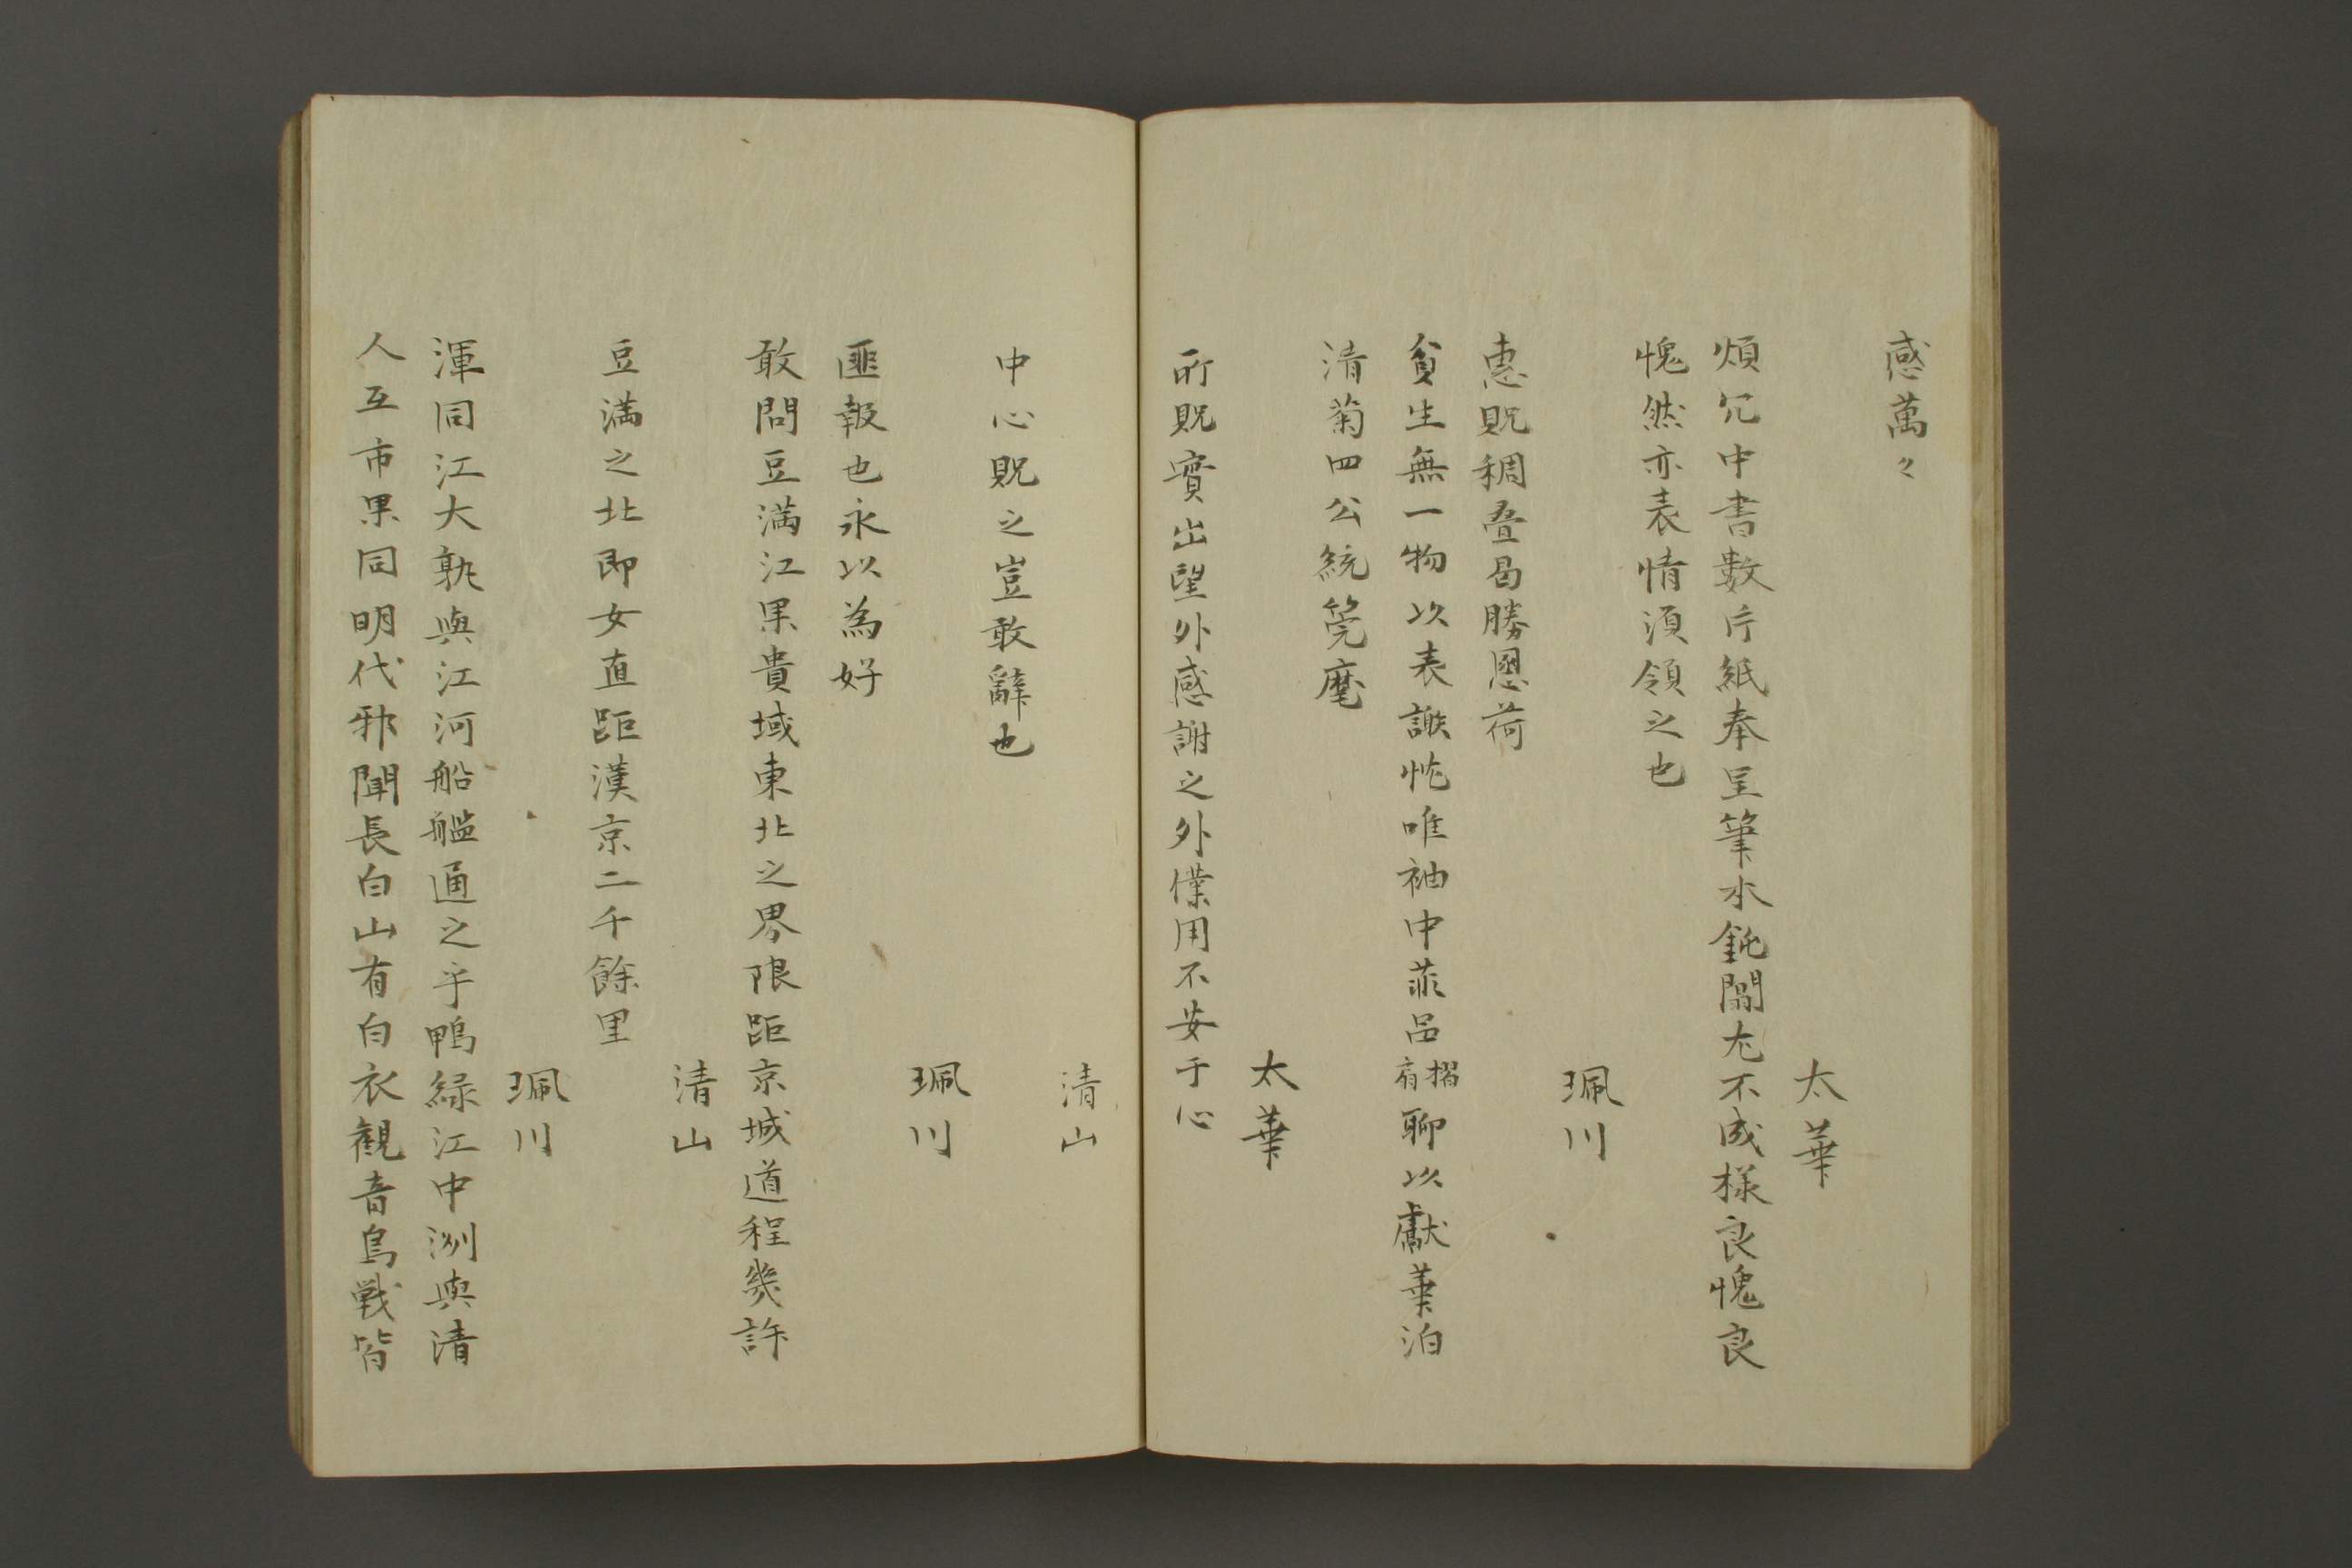 感萬々
太華
煩冗中書數片紙奉呈筆氷鈍閙尤不成樣良愧良
愧然亦表情須領之也
珮川
惠貺稠疊曷勝恩荷
貧生無一物以表謝忱唯袖中菲品摺扇聊以獻華泊
清菊四公統筦麾
太華
所貺實出望外感謝之外僕用不安于心
清山
中心貺之豈敢辭也
珮川
匪報也永以為好
敢問豆滿江果貴域東北之界限距京城道程幾許
清山
豆滿之北即女直距漢京二千餘里
珮川
渾同江大孰與江河船艦通之乎鴨緑江中洲與清
人互市果同明代邪聞長白山有白衣觀音鳥獣皆